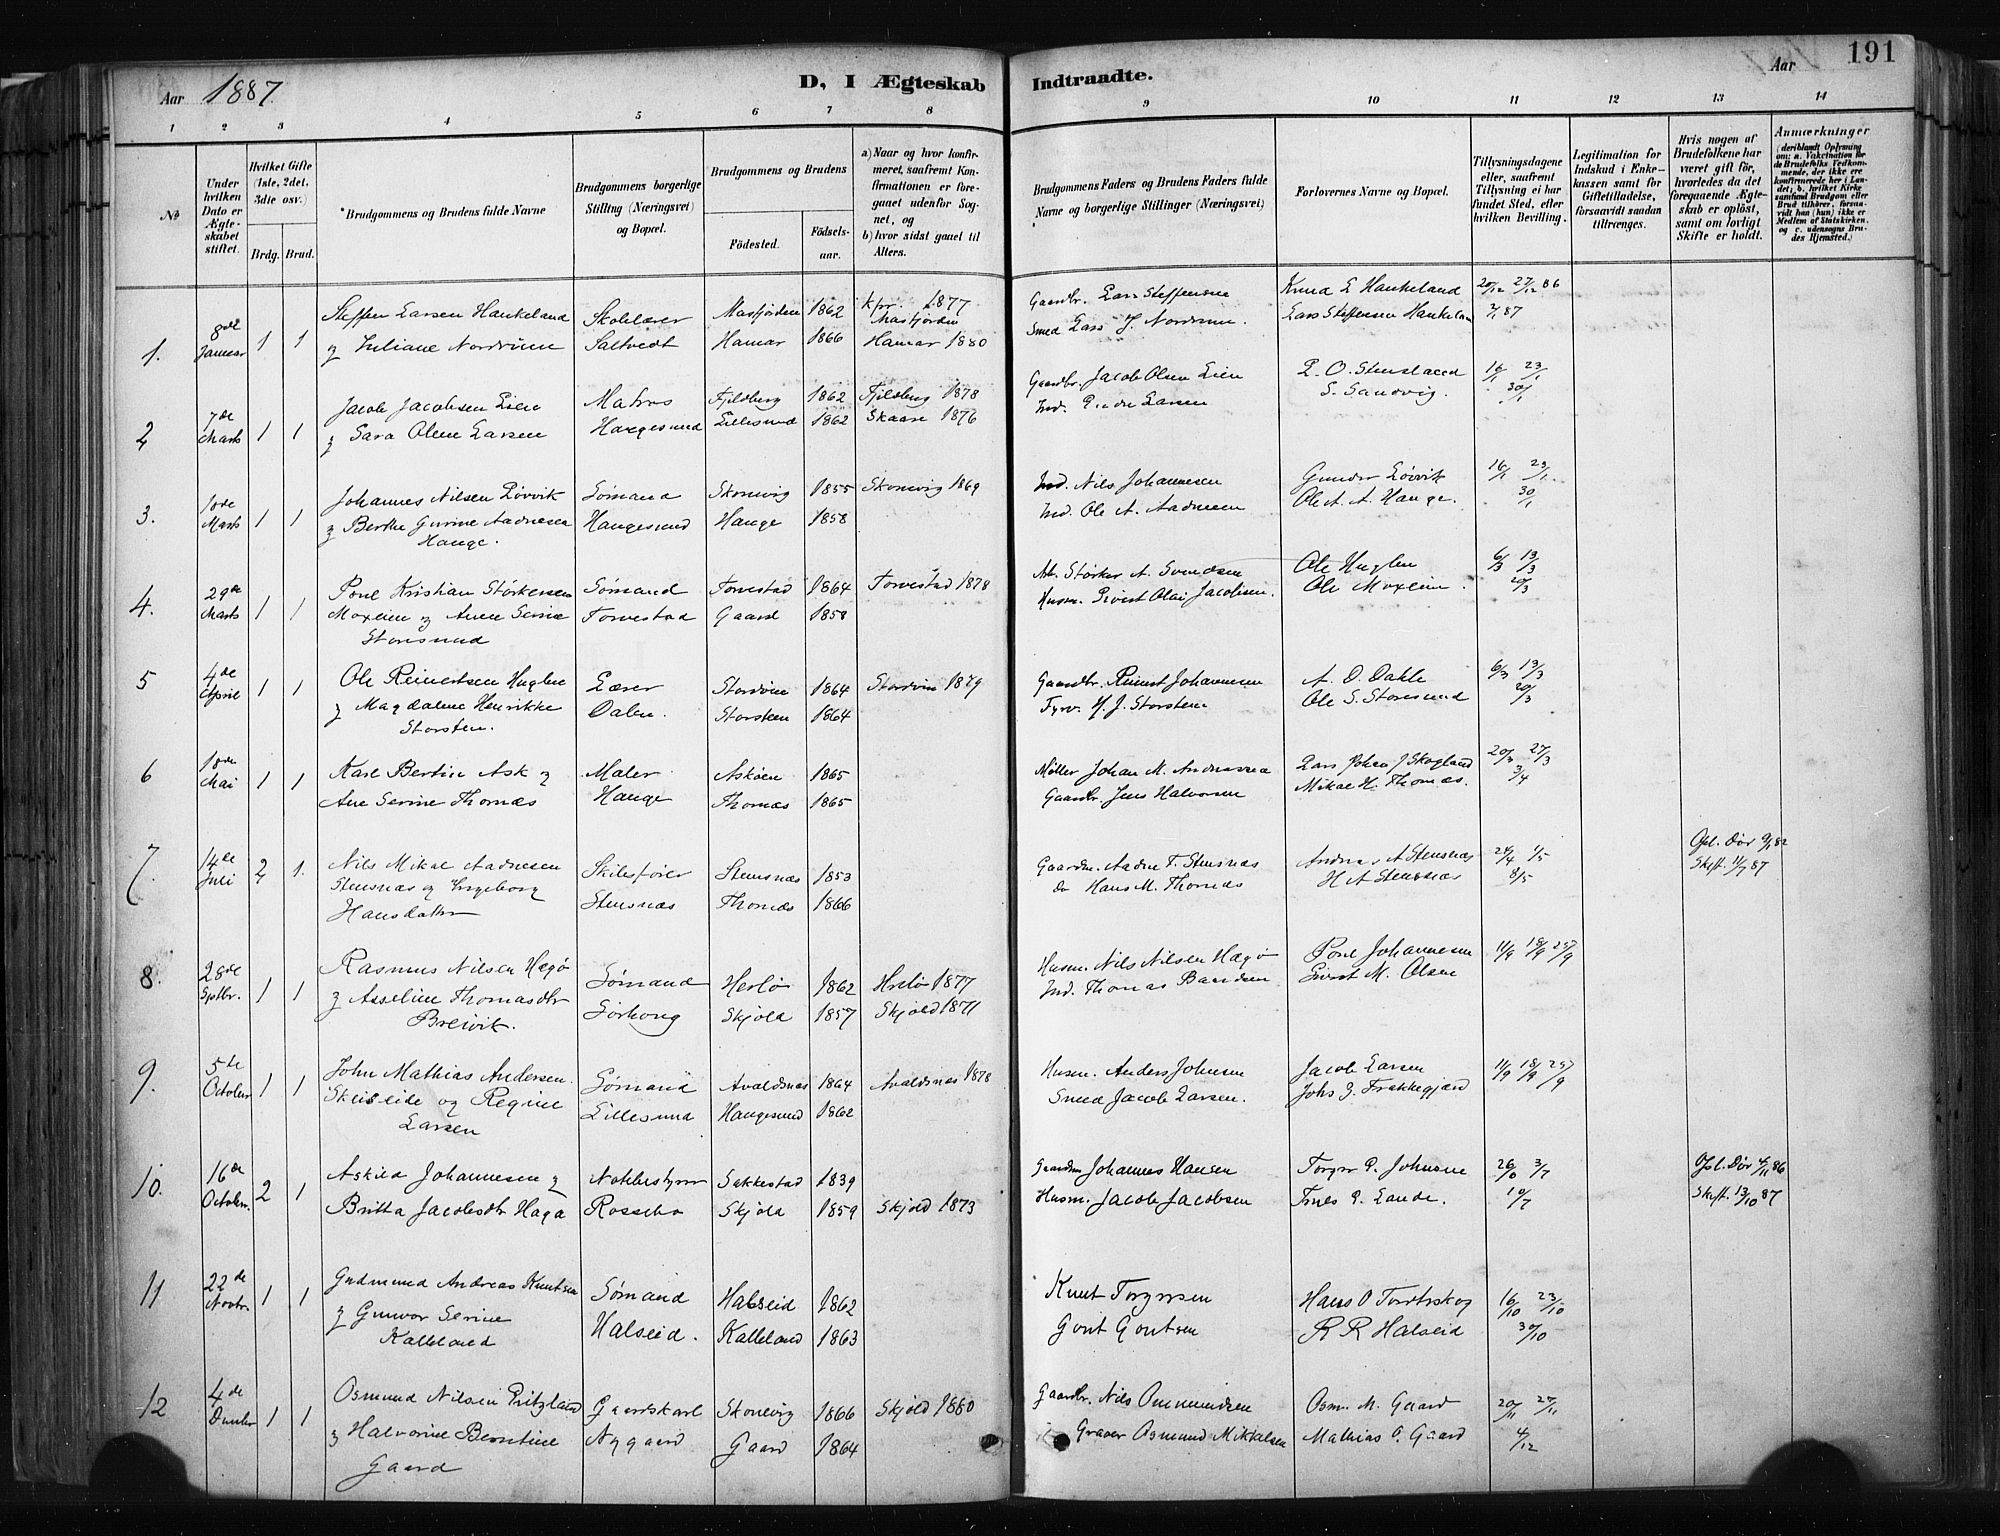 Aar 1887. D, I Ægteskab Indtraadte. Aar 191
1 2 3 4 5 6 7 8 9 10 11 12 13 14
No
Under hvilken Dato er Ægteskabet stiftet.
Hvilket Gifte (1ste, 2det, 3die osv.)
Brdg. Brud.
Brudgommens og Brudens fulde Navne
Brudgommens borgerlige Stilling (Næringsvei) og Bopæl.
Brudgommens og Brudens
Födested. Födselsaar.
a) Naar og hvor konfirmeret, saafremt Konfirmationen er foregaaet udenfor Sognet, og
b) hvor sidst gaaet til Alters.
Brudgommens Faders og Brudens Faders fulde Navne og borgerlige Stillinger (Næringsvei)
Forlovernes Navne og Bopæl.
Tillysningsdagene eller, saafremt Tillysning ei har fundet Sted, efter hvilken Bevilling.
Legitimation for Indskud i Enkekassen samt for Giftetilladelse, forsaavidt saadan tiltrænges.
Hvis nogen af Brudefolkene har været gift før, hvorledes da det foregaaende Ægteskab er oplöst, samt om lovligt Skifte er holdt.
Anmærkninger (deriblandt Oplysning om: a. Vakcination for de Brudefolks Vedkommende, der ikke ere konfirmerede her i Landet; b. hvilket Kirkesamfund Brudgom eller Brud tilhörer, forsaavidt han (hun) ikke er Medlem af Statskirken, og c. udensogns Brudes Hjemsted.)
1. 8de Januar 1 1 Steffen Larsen Haukeland Skolelærer Masfjorden 1862 Kfr. 1877 Masfjorden Gaardbr. Lars Steffensen Knud L Haukeland 20/12 27/12 86
& Juliane Nordrum Saltvedt Hamar 1866 Hamar 1880 Smed Lars J. Nordrum. Lars Steffensen Haukeland 2/1 87
2 7de Marts 1 1 Jacob Jacobsen Lien Matros Fjeldberg 1862 Fjeldberg 1878 Gaardbr. Jacob Olsen Lien P. O. Stensland 16/1 23/1
& Sara Oline Larsen Haugesund Lillesund 1862 Skaare 1876 Ind. Larsen S. Sandvig. 30/1
3. 10de Marts 1 1 Johannes Nilsen Løvvik Sømand Skonevig 1855 Skonevig 1869 Ind. Nils Johannesen Gunder Løvvik 16/1 23/1
& Berthe Gurine Aadnesen Haugesund Hauge 1858 Ind. Ole A. Aadnesen Ole A. A. Hauge. 30/1
Hauge.
4. 29de Marts 1 1 Poul Kristian Størkersen Sømand Torvestad 1864 Torvestad 1878 Arb. Størker A. Svendsen Ole Huglen 6/3 13/3
Moxeim & Anne Serine Torvestad Gaard 1858 Husm. Sivert Olai Jacobsen. Ole Moxeim. 20/3
Storesund
5 4de April 1 1 Ole Reinertsen Huglen Lærer Stordøen 1864 Stordøen 1879 Gaardbr. Reinert Johannesen A. D. Dahle 6/3 13/3
& Magdalene Henrikke Dalen. Storsteen 1864 Fyrv. H. J. Storsten Ole S. Storesund 20/3
Storsten.
6 18de Mai 1 1 Karl Bertin Ask & Maler Askøen 1865 Møller Johan M. Andreassen Lars Johan J Skogland 20/3 27/3
Ane Serine Thomæs Hauge Thomæs 1865 Gaardbr. Jens Halvorsen Mikal H. Thomæs. 3/4
7. 14de Juli 2 1. Nils Mikal Aadnesen Skibsfører Stensnæs 1853 Gaardm. Aadne T. Stensnæs Andreas A Stensnæs 24/4 1/5 Opl. Dør 9/1 82
Stensnæs & Ingeborg Stensnæs Thomæs 1866 do Hans M. Thomæs H A Stensnæs 8/5 Skift. 11/7 87
Hansdatter
8. 28de Septbr. 1 1 Rasmus Nilsen Hegø Sømand Herlø 1862 Herlø 1877 Husm. Nils Nilsen Hægø Poul Johannesen 11/9 18/9 25/9
& Asseline Thomasdtr Sørhoug Skjold 1857 Skjold 1871 Ind. Thomas Baardsen Sivert M. Olsen
Breivik.
9. 5te October 1 1 John Mathias Andersen Sømand Avaldsnæs 1864 Avaldsnæs 1878 Husm. Anders Johnsen Jacob Larsen 11/9 18/9 25/9
Skeiseide og Regine Lillesund Haugesund 1862 Smed Jacob Larsen. Johs G. Frakkegjærd
Larsen
10. 16de October. 2 1 Askild Johannesen & Notebestyrer Sakkestad 1839 Gaardm Johannes Hansen Torger P. Johnsen 26/6 3/7 Opl. Dør 4/11 86
Britta Jacobsdtr Haga Rossebø Skjold 1859 Skjold 1873 Husm. Jacob Jacobsen P. Lande. 10/7 Skift. 13/10 87
11 22de Novbr. 1 1 Gudmund Andreas Knutsen Sømand Halseid 1862 Knut Torgersen Hans O Tordtskog 16/10 23/10
& Gunvor Serine Halseid. Kalleland 1863 Gout Goutsen R R Halseid 30/10
Kalleland
12 4de Decmber 1 1 Osmund Nilsen Fritzland Gaardskarl Skonevig 1866 Skjold 1880 Gaardbr. Nils Ommundsen Osm. M. Gaard 20/11 27/11
& Halvorine Berntine Nygaard Gaard 1864 Graver Osmund Mikkelsen Mathias O. Gaard 4/12
Gaard